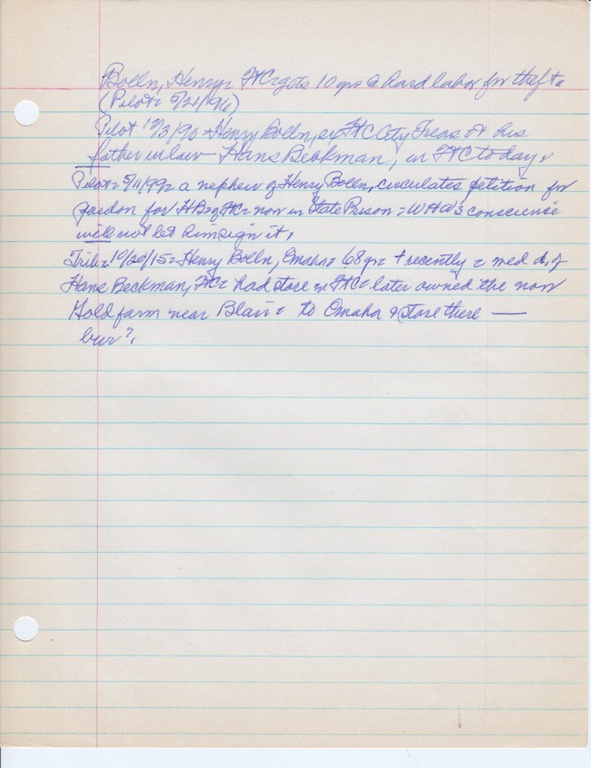 Bolln, Henry = FtC = gets 10 yrs @ hard labor for theft =
(Pilot = 5/21/96)
Pilot 12/3/90 = Henry Bolln, ex FtC City Treas & his
father in law - Hans Beckman, in FtC today =
Pilot = 5/11/99 = a nephew of Henry Bolln, circulates petition for
pardon for HB of FtC = now in State Prison = WHW's conscience
will not let him sign it.
Trib = 10/20/15 = Henry Bolln, Omaha = 68 yrs + recently = med d. of
Hans Beckman, FtC = had store in FtC = later owned the now
farm near Blair = to Omaha & store there —
bur?.